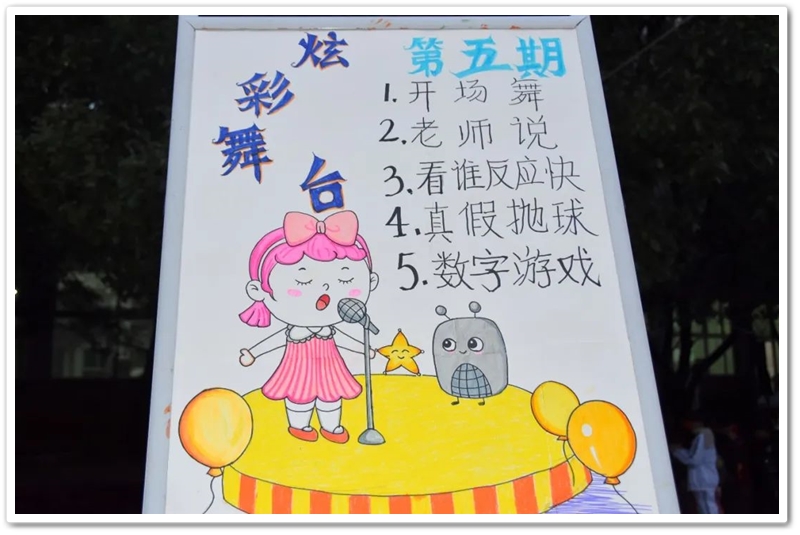 炫彩舞台
第五期
1.开场舞
2.老师说
3.看谁反应快
4.真假抛球
5.数字游戏